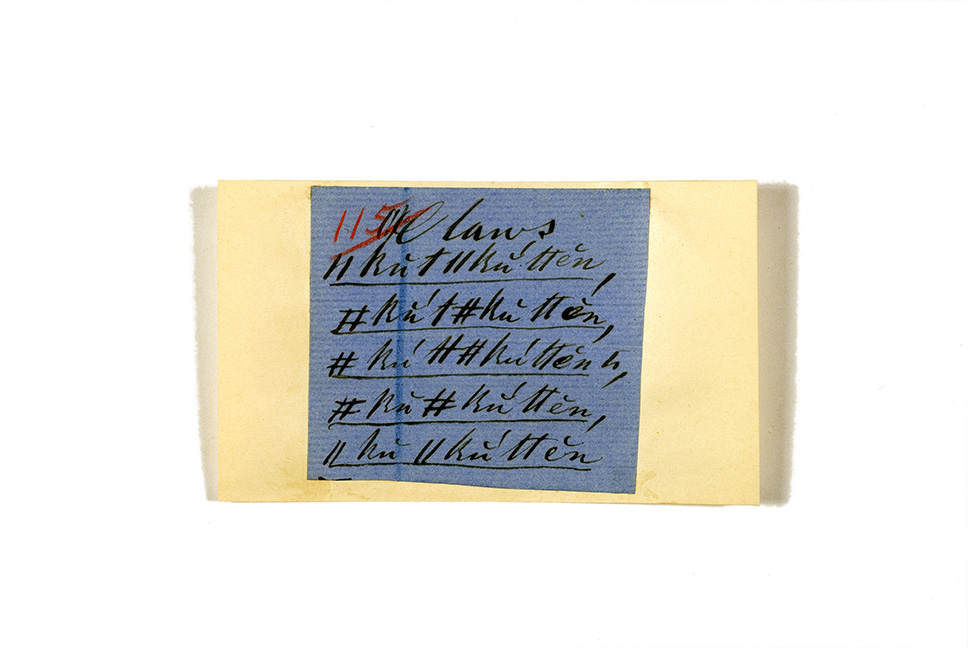 115 The laws
ǁkŭ́tǁkŭ́ttĕn,
ǂkŭ́tǂkŭ́ttĕn,
ǂkŭ́ttǂkŭ́ttĕnn,
ǂkŭǂkŭ́ttĕn,
ǁkŭǁkŭ́ttĕn